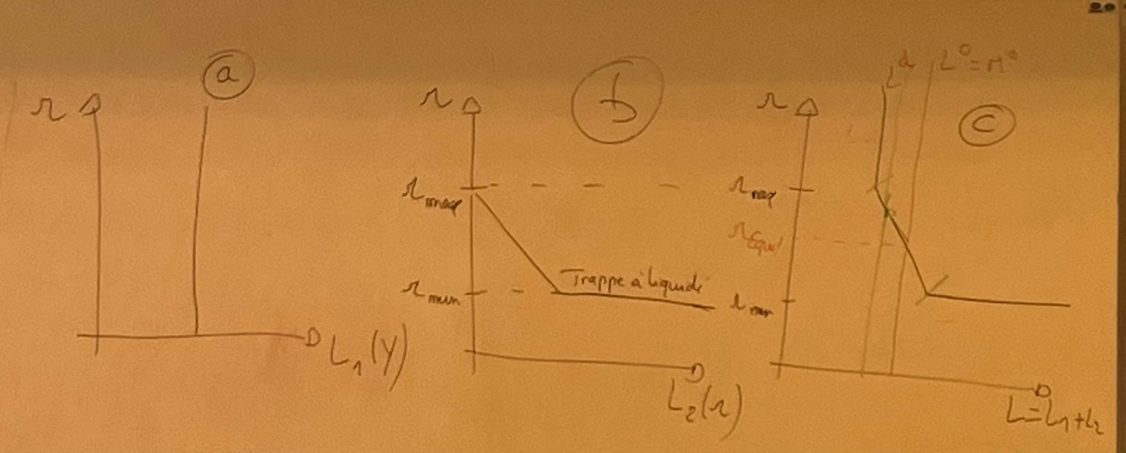 a
r
L₁(Y)
b
r
r max
r min
Trappe à liquidi
L₂(r)
c
Lᵈ L⁰=M⁰
r
r max
r Equi
r min
L=L₁+L₂